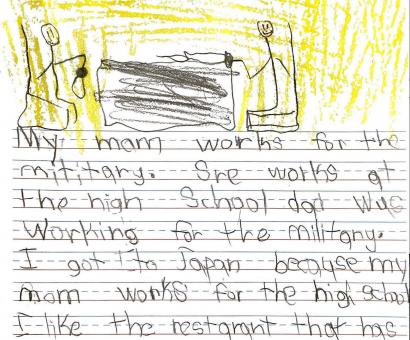 My mom works for the
mititary. Sre works at
the high School dad wus
Working for the military.
I got to Japan because my
mom works for the high school
I like the restgrant that has